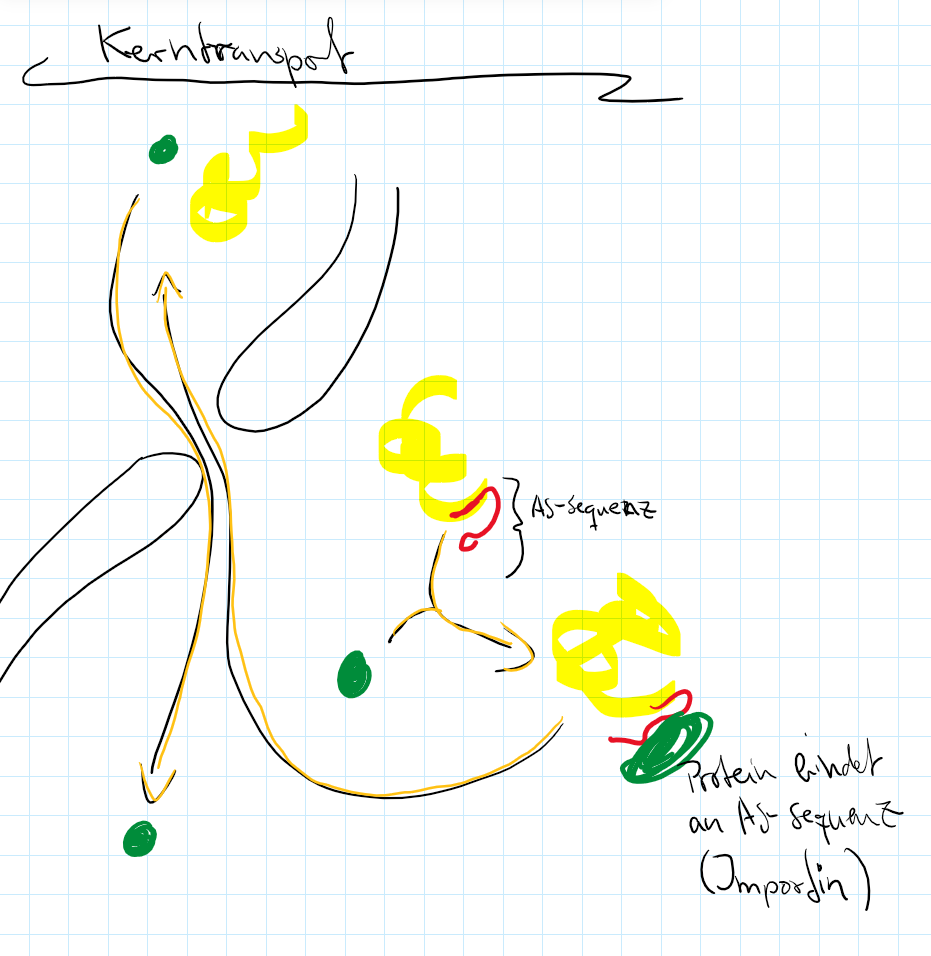 Kerntransport
AS-Sequenz
Protein bindet
an AS-Sequenz
(Importin)